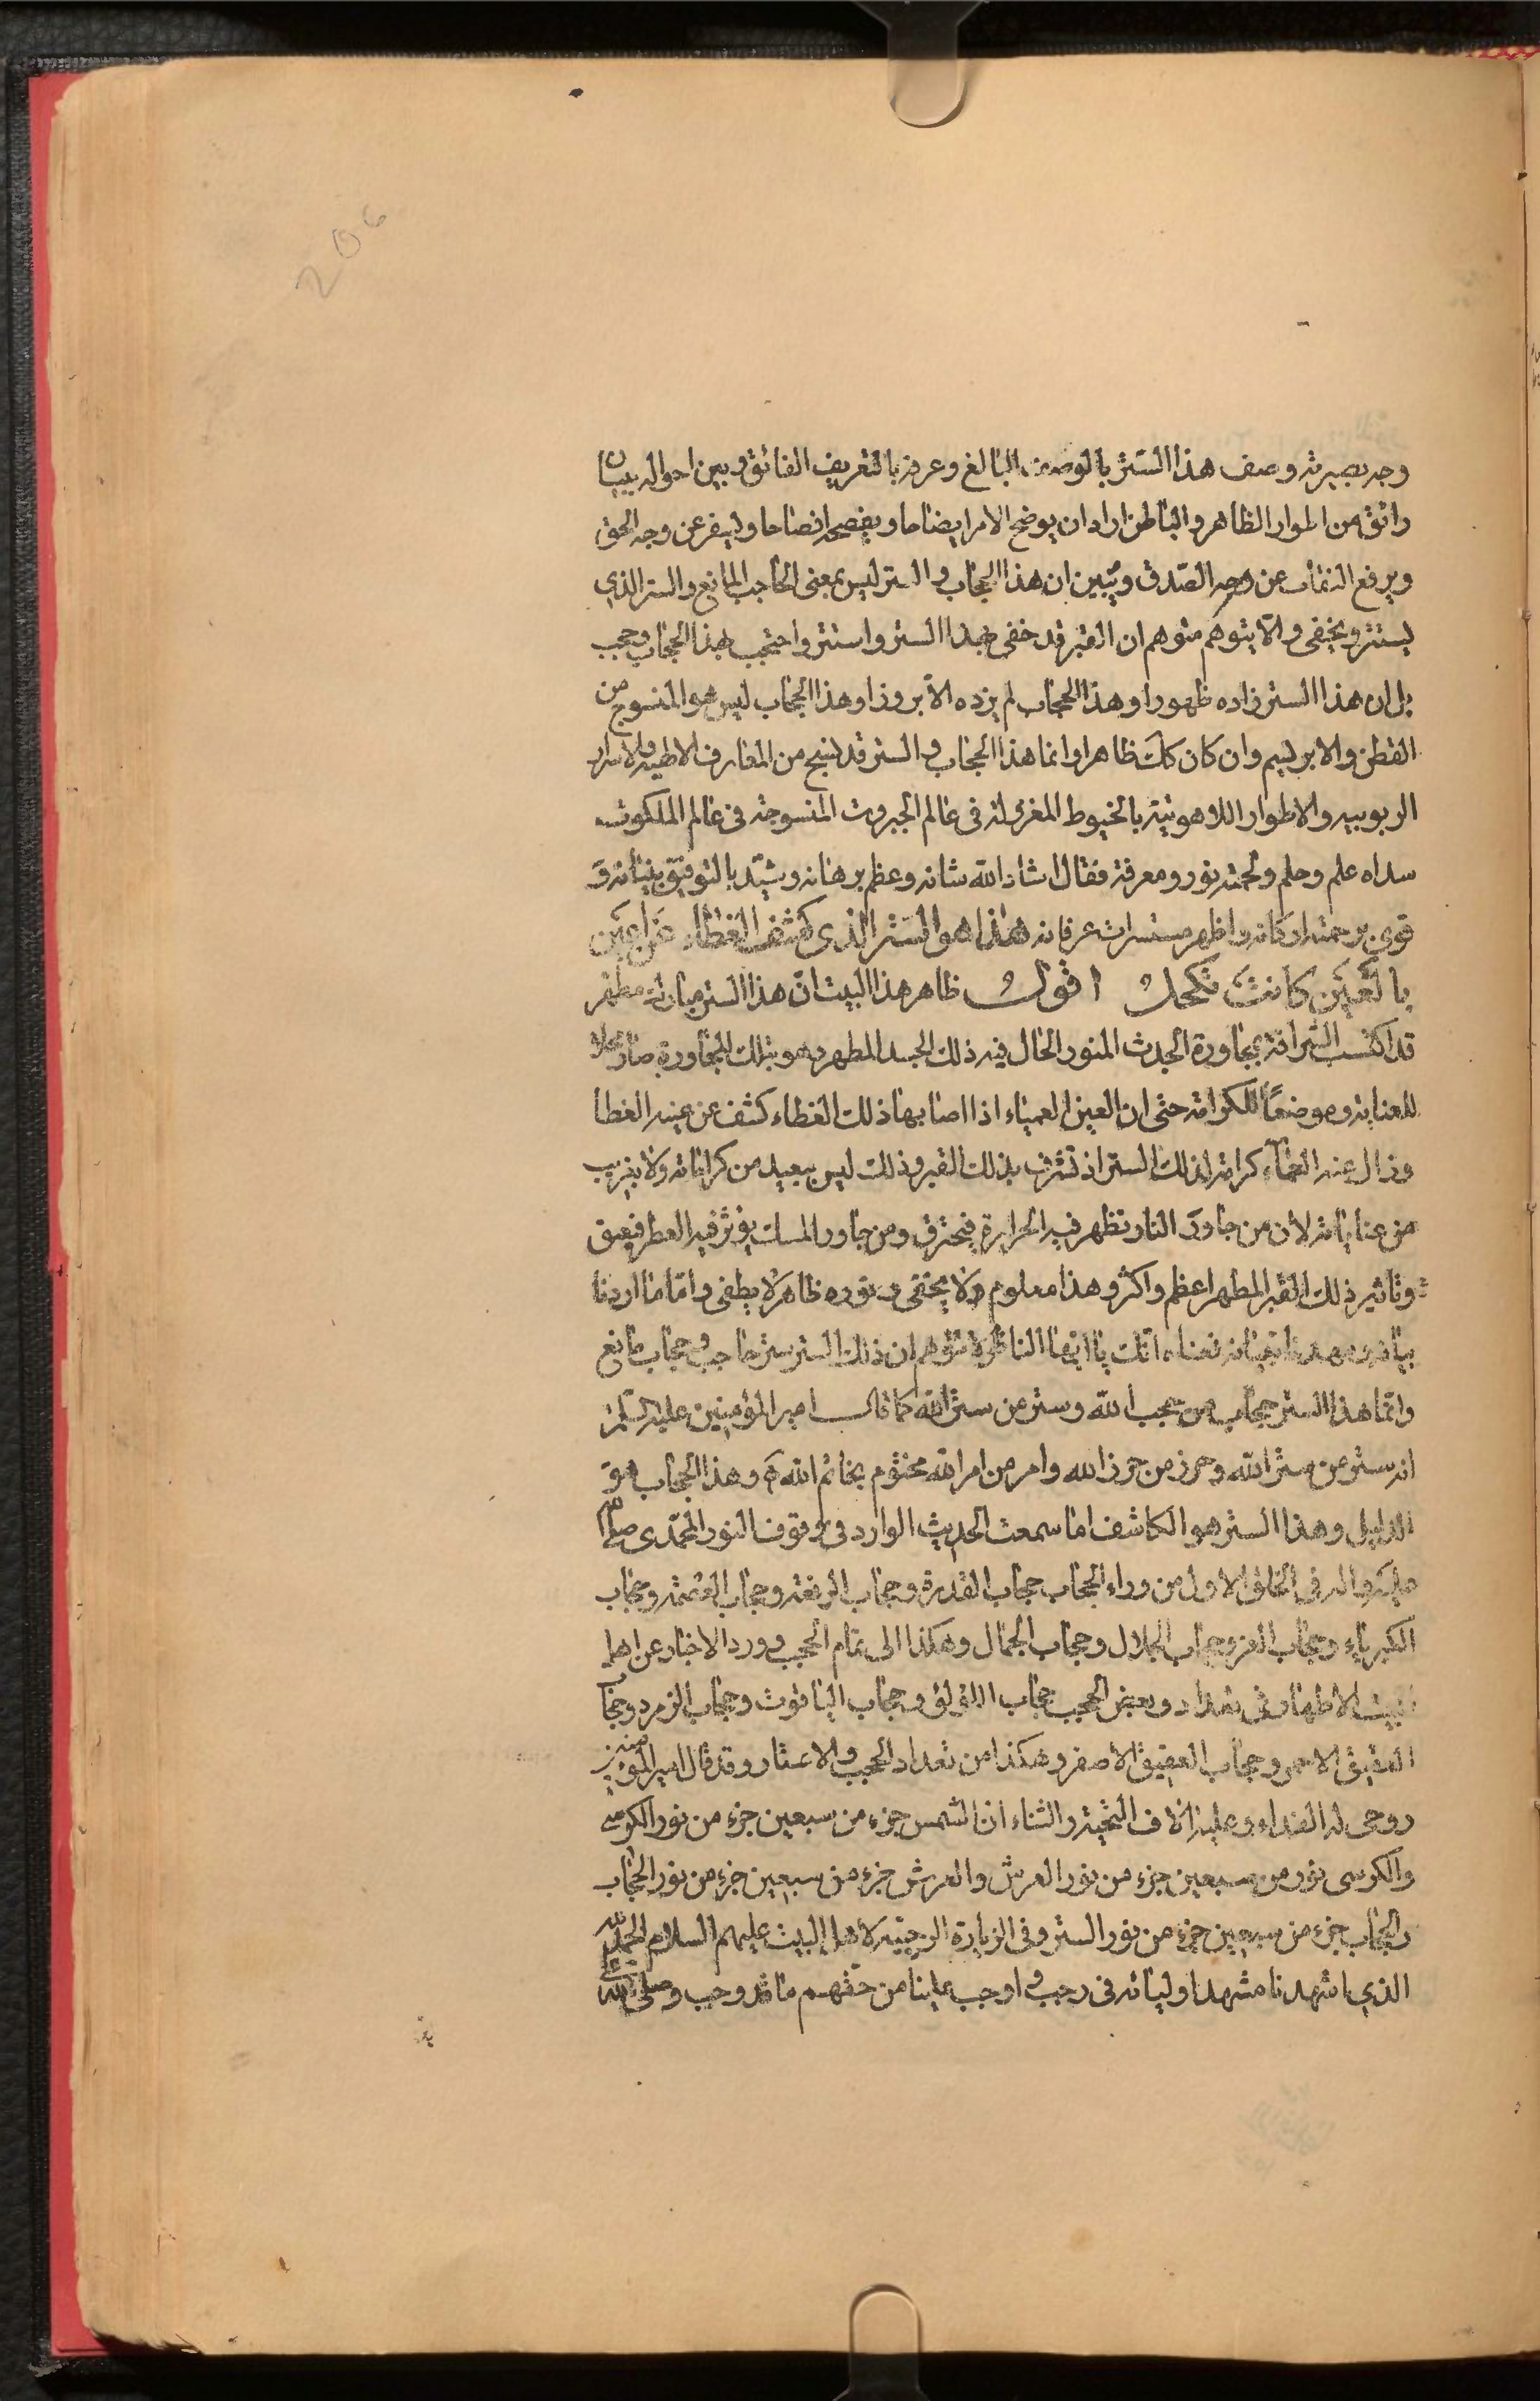 206
وجه بصيرته وصف هذا الستر بالوصف البالغ وعرفه بالتعريف الفائق وبين احواله ببيان
رائق من اطوار الظاهر والباطن اراد ان يوضح الامر ايضاحا ويفصحه افصاحا ويسفر عن وجه الحق
ويرفع النقاب عن وجه الصدق ويبين ان هذا الحجاب والستر ليس بمعنى الحاجب المانع والستر الذي
يستتر ويختفى ولا يتوهم متوهم ان القبر قد خفى بهذا الستر واستتر واحتجب بهذا الحجاب وحجب
بل ان هذا الستر زاده ظهورا وهذا الحجاب لم يزده الا بروزا وهذا الحجاب ليس هو المنسوج من
القطن والابريسم وان كان كك ظاهرا وانما هذا الحجاب والستر قد نسج من المعارف الالهية والاسرار
الربوبيه والاطوار اللاهوتية بالخيوط المغزولة فى عالم الجبروت المنسوجة فى عالم الملكوت
سداه علم وحلم ولحمته نور ومعرفة فقال اشاد الله شانه وعظم برهانه وشيد بالتوفيق بنيانه و
قوى برحمته اركانه واظهر مستسرات عرفانه هذا هو الستر الذى كشف الغطاء عن اعين
بالعين كانت تكحل اقول ظاهر هذا البيت ان هذا الستر مبارك مطهر
قد اكتسب الشرافة بمجاورة الجدث المنور الحال فيه ذلك الجسد المطهر وهو بتلك المجاورة صار محلا
للعناية وموضعاً للكرامة حتى ان العين العمياء اذا اصابها ذلك الغطاء كشف عن عينه الغطا
وزال عنه العماء كرامة لذلك الستر اذ تشرف بذلك القبر وذلك ليس ببعيد من كراماته ولا بغريب
من عناياته لان من جاور النار تظهر فيه الحرارة فيحترق ومن جاور المسك يؤثر فيه العطر فيعبق
وتاثير ذلك القبر المطهر اعظم واكثر وهذا معلوم ولا يختفى ونوره ظاهر لا يطفى واما ما اردنا
بيانه ايها الناظر لا تتوهم ان ذلك الستر ستر حاجب وحجاب مانع
وانما هذا الستر حجاب من حجب الله وستر من ستر الله كما قال امير المؤمنين عليه السلام
انه ستر من ستر الله وحرز من حرز الله وامر من امر الله مختوم بخاتم الله وهذا الحجاب هو
الدليل وهذا الستر هو الكاشف اما سمعت الحديث الوارد فى وقوف النور المحمدى صلى الله
عليه واله فى الخلق الاول من وراء الحجاب حجاب القدرة وحجاب الرفعة وحجاب العظمة وحجاب
الكبرياء وحجاب العز وحجاب الجلال وحجاب الجمال وهكذا الى تمام الحجب وورد الاخبار عن اهل
البيت الاطهار فى تعداد وبعض الحجب حجاب اللؤلؤ وحجاب الياقوت وحجاب الزمرد وحجاب
العقيق الاحمر وحجاب العقيق الاصفر وهكذا من تعداد الحجب والاستار وقد قال امير المؤمنين
روحى له الفداء وعليه الاف التحية والثناء ان الشمس جزء من سبعين جزء من نور الكرسى
والكرسى نور من سبعين جزء من نور العرش والعرش جزء من سبعين جزء من نور الحجاب
والحجاب جزء من سبعين جزء من نور الستر وفى الزيارة الرجبيه لاهل البيت عليهم السلام الحمد لله
الذي اشهدنا مشهد اوليائه فى رجب واوجب علينا من حقهم ما قد وجب وصلى الله